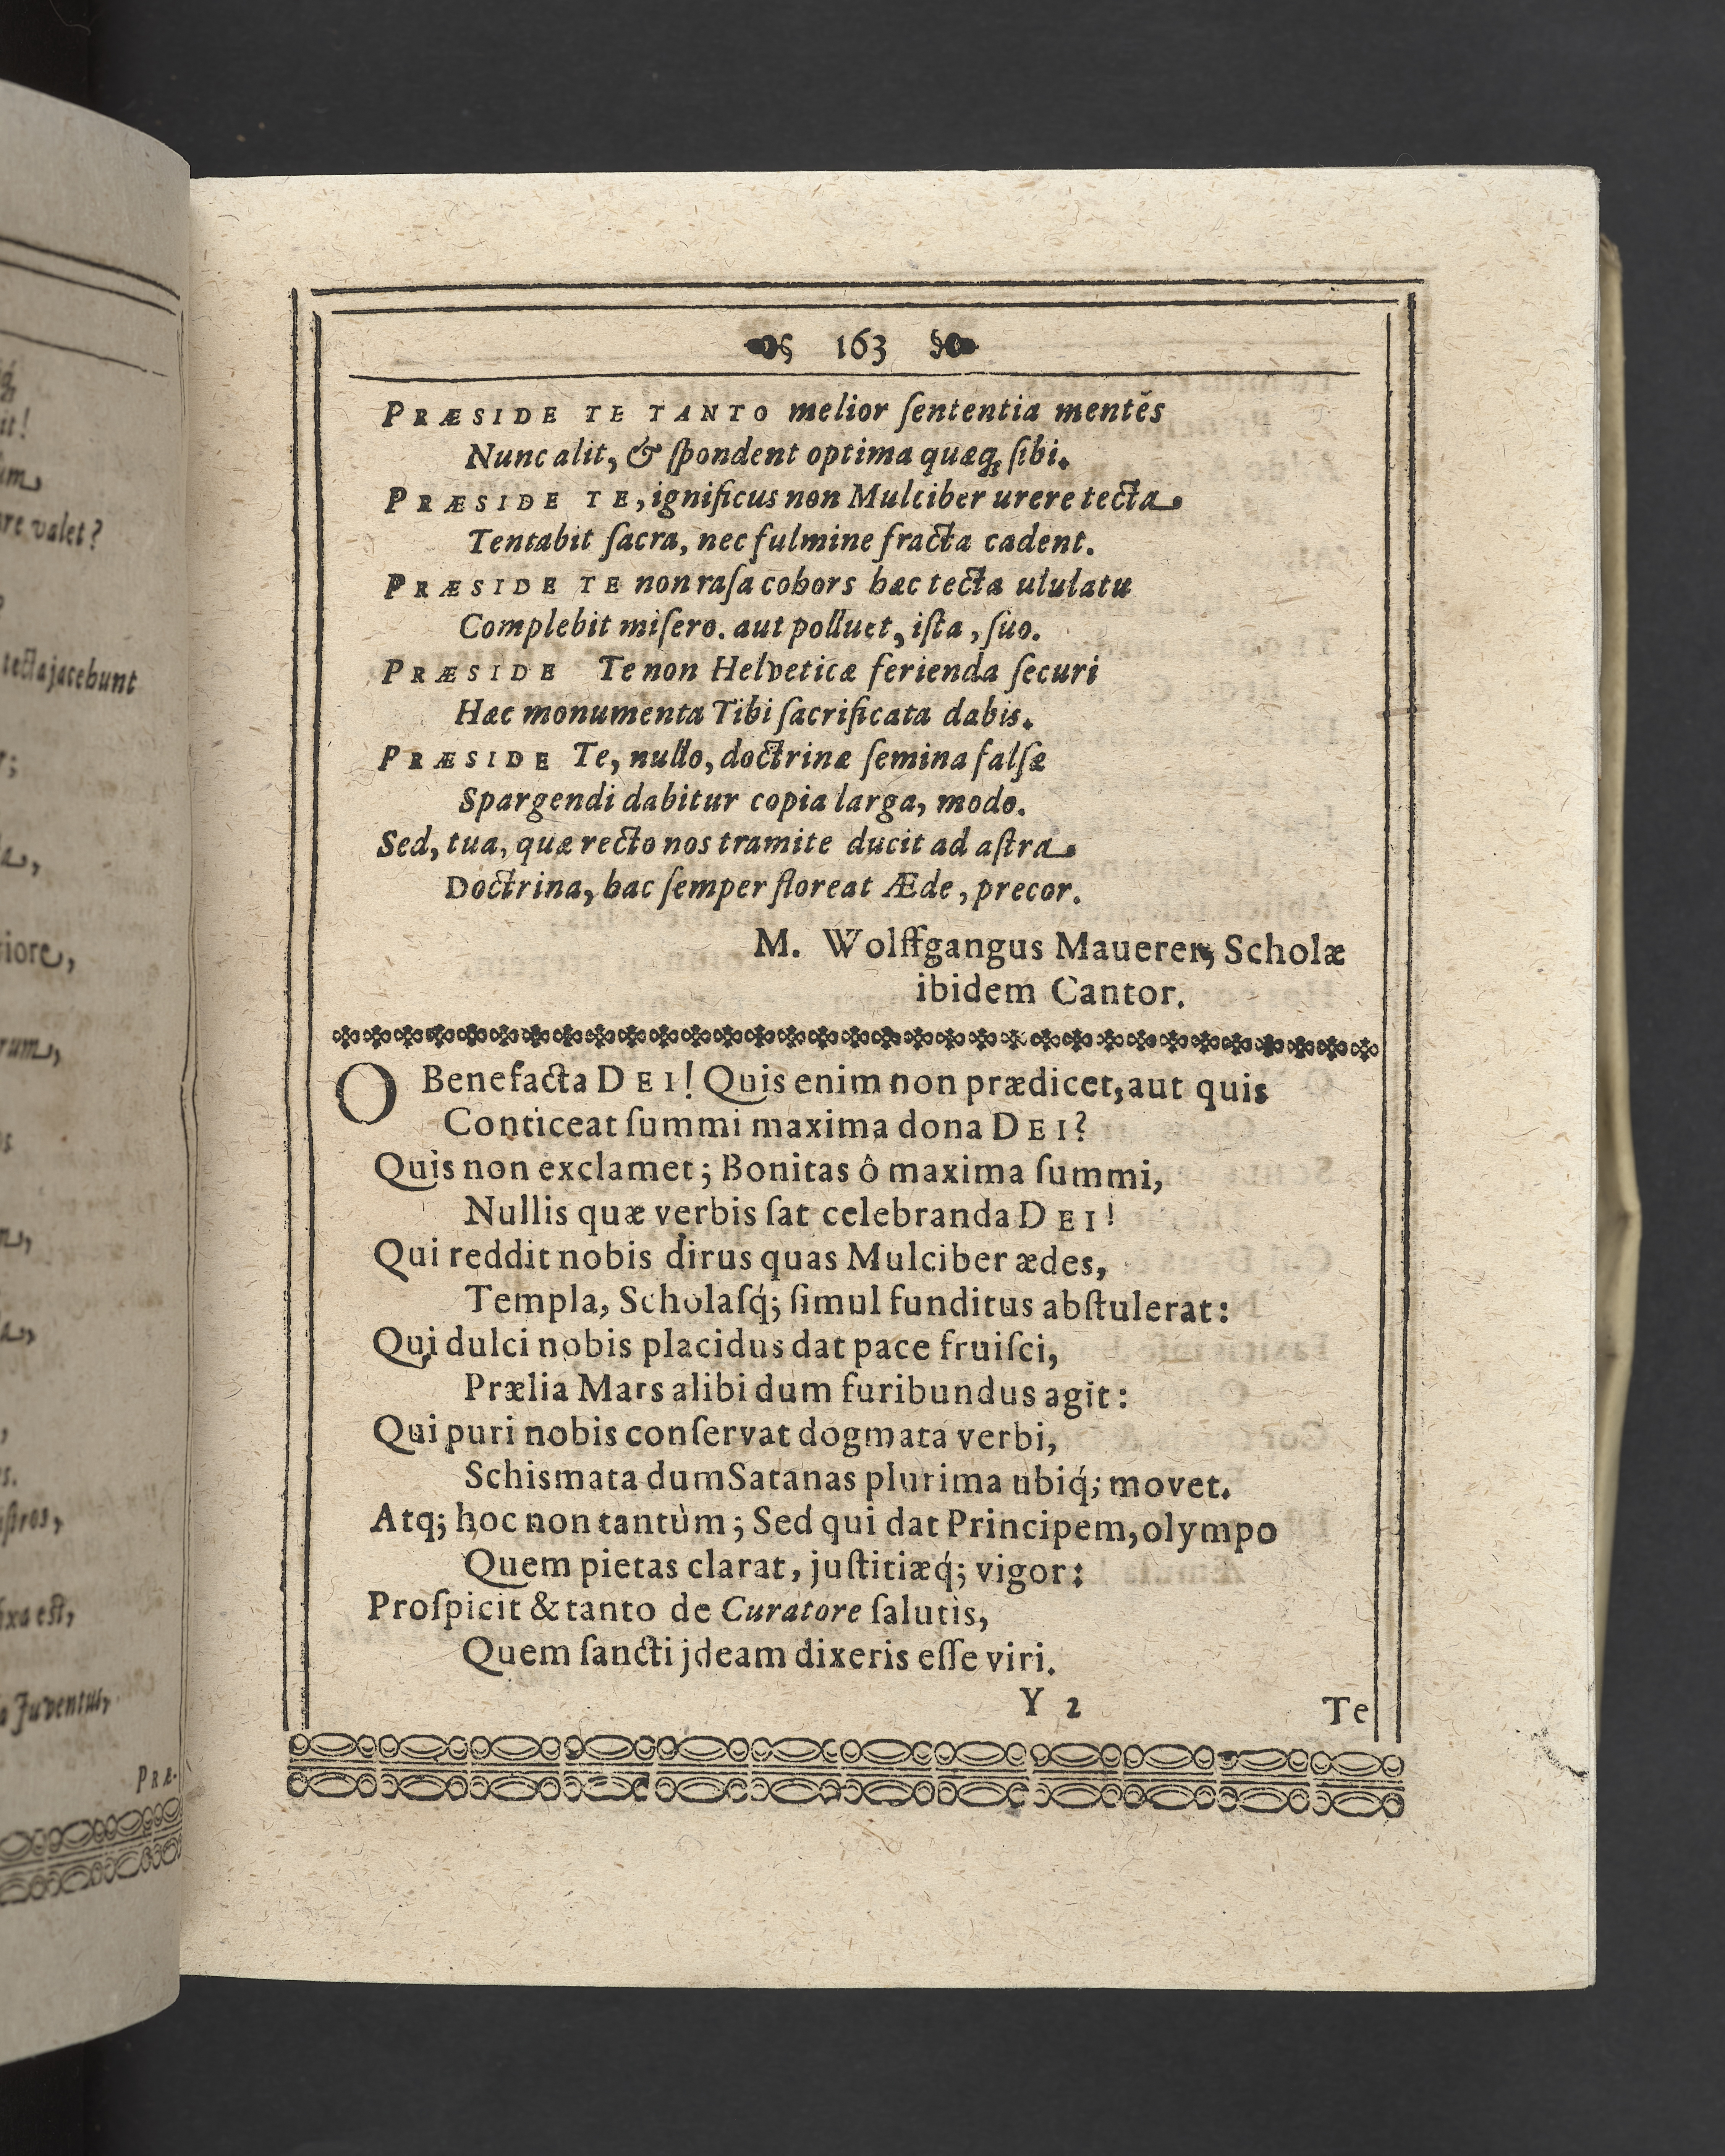 q́;
it!
um,
re valet?
tecta jacebunt
r;
a,
iore,
rum,
m,
a,
s.
stros,
ixa est,
Juventus,
PRÆ-
163
PRÆSIDE TE TANTO melior ſententia mentés
Nunc alit, & ſpondent optima quæq; ſibi.
PRÆSIDE TE, ignificus non Mulciber urere tecta
Tentabit ſacra, nec fulmine fracta cadent.
PRÆSIDE TE non raſa cohors hæc tecta ululatu
Complebit miſero. aut polluet, iſta, ſuo.
PRÆSIDE Te non Helveticæ ferienda ſecuri
Hæc monumenta Tibi ſacrificata dabis.
PRÆSIDE Te, nullo, doctrinæ ſemina falſæ
Spargendi dabitur copia larga, modo.
Sed, tua, quæ recto nos tramite ducit ad aſtra
Doctrina, hac ſemper floreat Æde, precor.
M. Wolffgangus Mauerer, Scholæ
ibidem Cantor.
O Benefacta DEI! Quis enim non prædicet, aut quis
Conticeat ſummi maxima dona DEI?
Quis non exclamet; Bonitas ô maxima ſummi,
Nullis quæ verbis ſat celebranda DEI!
Qui reddit nobis dirus quas Mulciber ædes,
Templa, Scholaſq́; ſimul funditus abſtulerat:
Qui dulci nobis placidus dat pace fruiſci,
Prælia Mars alibi dum furibundus agit:
Qui puri nobis conſervat dogmata verbi,
Schismata dum Satanas plurima ubiq́; movet.
Atq; hoc non tantùm; Sed qui dat Principem, olympo
Quem pietas clarat, juſtitiæq́; vigor:
Proſpicit & tanto de Curatore ſalutis,
Quem ſancti jdeam dixeris eſſe viri.
Y 2
Te